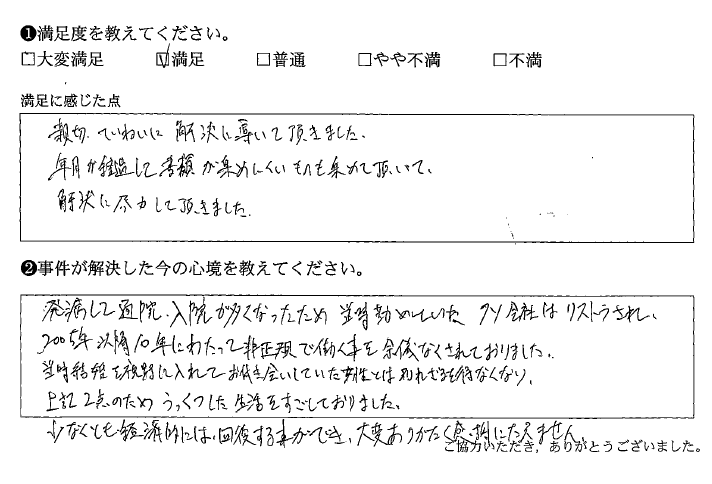 ❶満足度を教えてください。
□大変満足 ☑満足 □普通 □やや不満 □不満
満足に感じた点
親切、ていねいに 解決に導いて頂きました。
年月が経過して書類が集めにくいものも集めて頂いて、
解決に尽力して頂きました。
❷事件が解決した今の心境を教えてください。
発病して通院、入院が多くなったため 当時勤めていた 会社は リストラされ、
2005年以降10年にわたって非正規で働く事を余儀なくされておりました。
当時結婚を視野に入れてお付き会いしていた女性とは別れざるを得なくなり、
上記2点のため うっくつした生活をすごしておりました。
少なくとも経済的には、回復する事ができ、大変ありがたく感謝にたえません。
ご協力いただき、ありがとうございました。